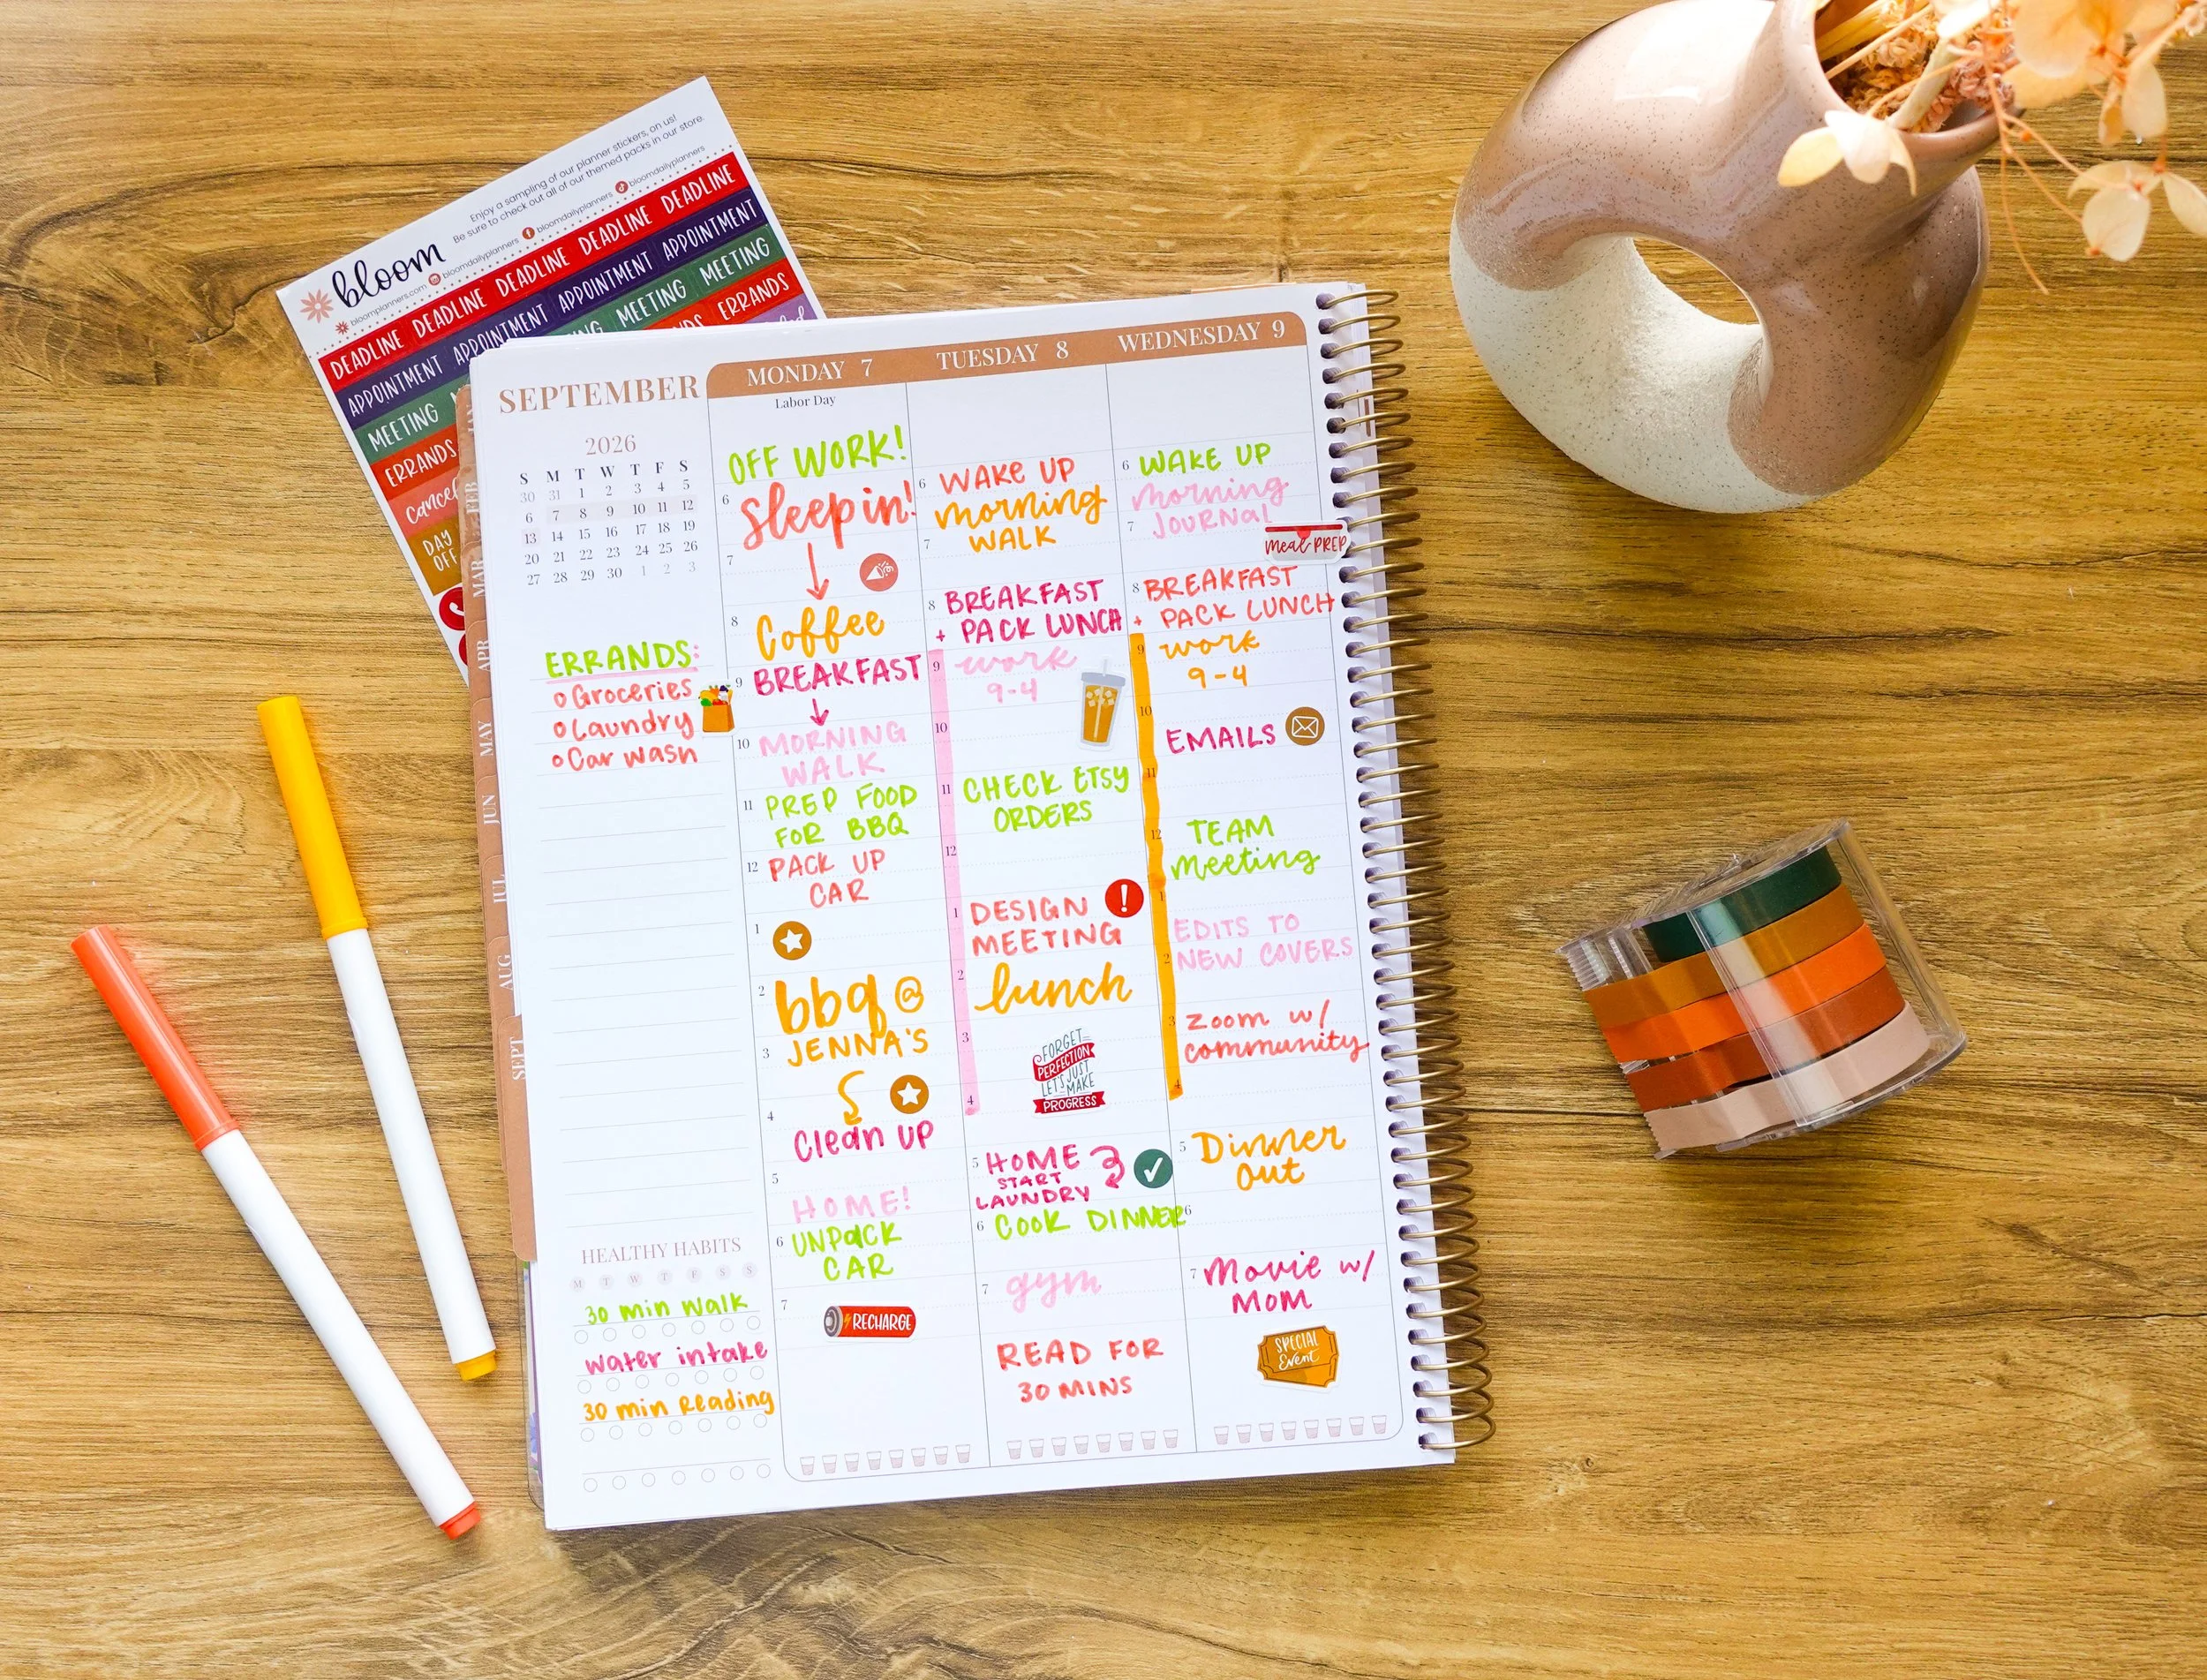 Enjoy a sampling of our planner stickers, on us!
Be sure to check out all of our themed packs in our store.
bloom
bloomplanners.com bloomdailyplanners bloomdailyplanners bloomdailyplanners
DEADLINE DEADLINE DEADLINE DEADLINE DEADLINE
APPOINTMENT APPOINTMENT APPOINTMENT APPOINTMENT
MEETING MEETING MEETING
ERRANDS ERRANDS
DAY
OFF
JAN
FEB
MAR
APR
MAY
JUN
JUL
AUG
SEPT
SEPTEMBER
2026
S M T W T F S
30 31 1 2 3 4 5
6 7 8 9 10 11 12
13 14 15 16 17 18 19
20 21 22 23 24 25 26
27 28 29 30 1 2 3
ERRANDS:
Groceries
Laundry
Car wash
HEALTHY HABITS
M T W T F S S
30 min walk
water intake
30 min Reading
MONDAY 7
Labor Day
OFF WORK!
6
Sleep in!
7
8 Coffee
9 BREAKFAST
10 MORNING
WALK
11 PREP FOOD
FOR BBQ
12 PACK UP
CAR
1
2 bbq @
3 JENNA'S
4
Clean UP
5
HOME!
6 UNPACK
CAR
7
RECHARGE
TUESDAY 8
6 WAKE UP
morning
7 WALK
8 BREAKFAST
+ PACK LUNCH
9 work
9-4
10
11 CHECK ETSY
ORDERS
12
1 DESIGN !
MEETING
2 lunch
3
FORGET
PERFECTION
LET'S JUST
MAKE
PROGRESS
4
5 HOME
START
LAUNDRY
6 COOK DINNER
7 gym
READ FOR
30 MINS
WEDNESDAY 9
6 WAKE UP
morning
7 JOURNAL
Meal PREP
8 BREAKFAST
+ PACK LUNCH
9 work
9-4
10
EMAILS
11
12 TEAM
Meeting
1
EDITS TO
2 NEW COVERS
3 Zoom w/
community
4
5 Dinner
out
6
7 Movie w/
MOM
SPECIAL
Event